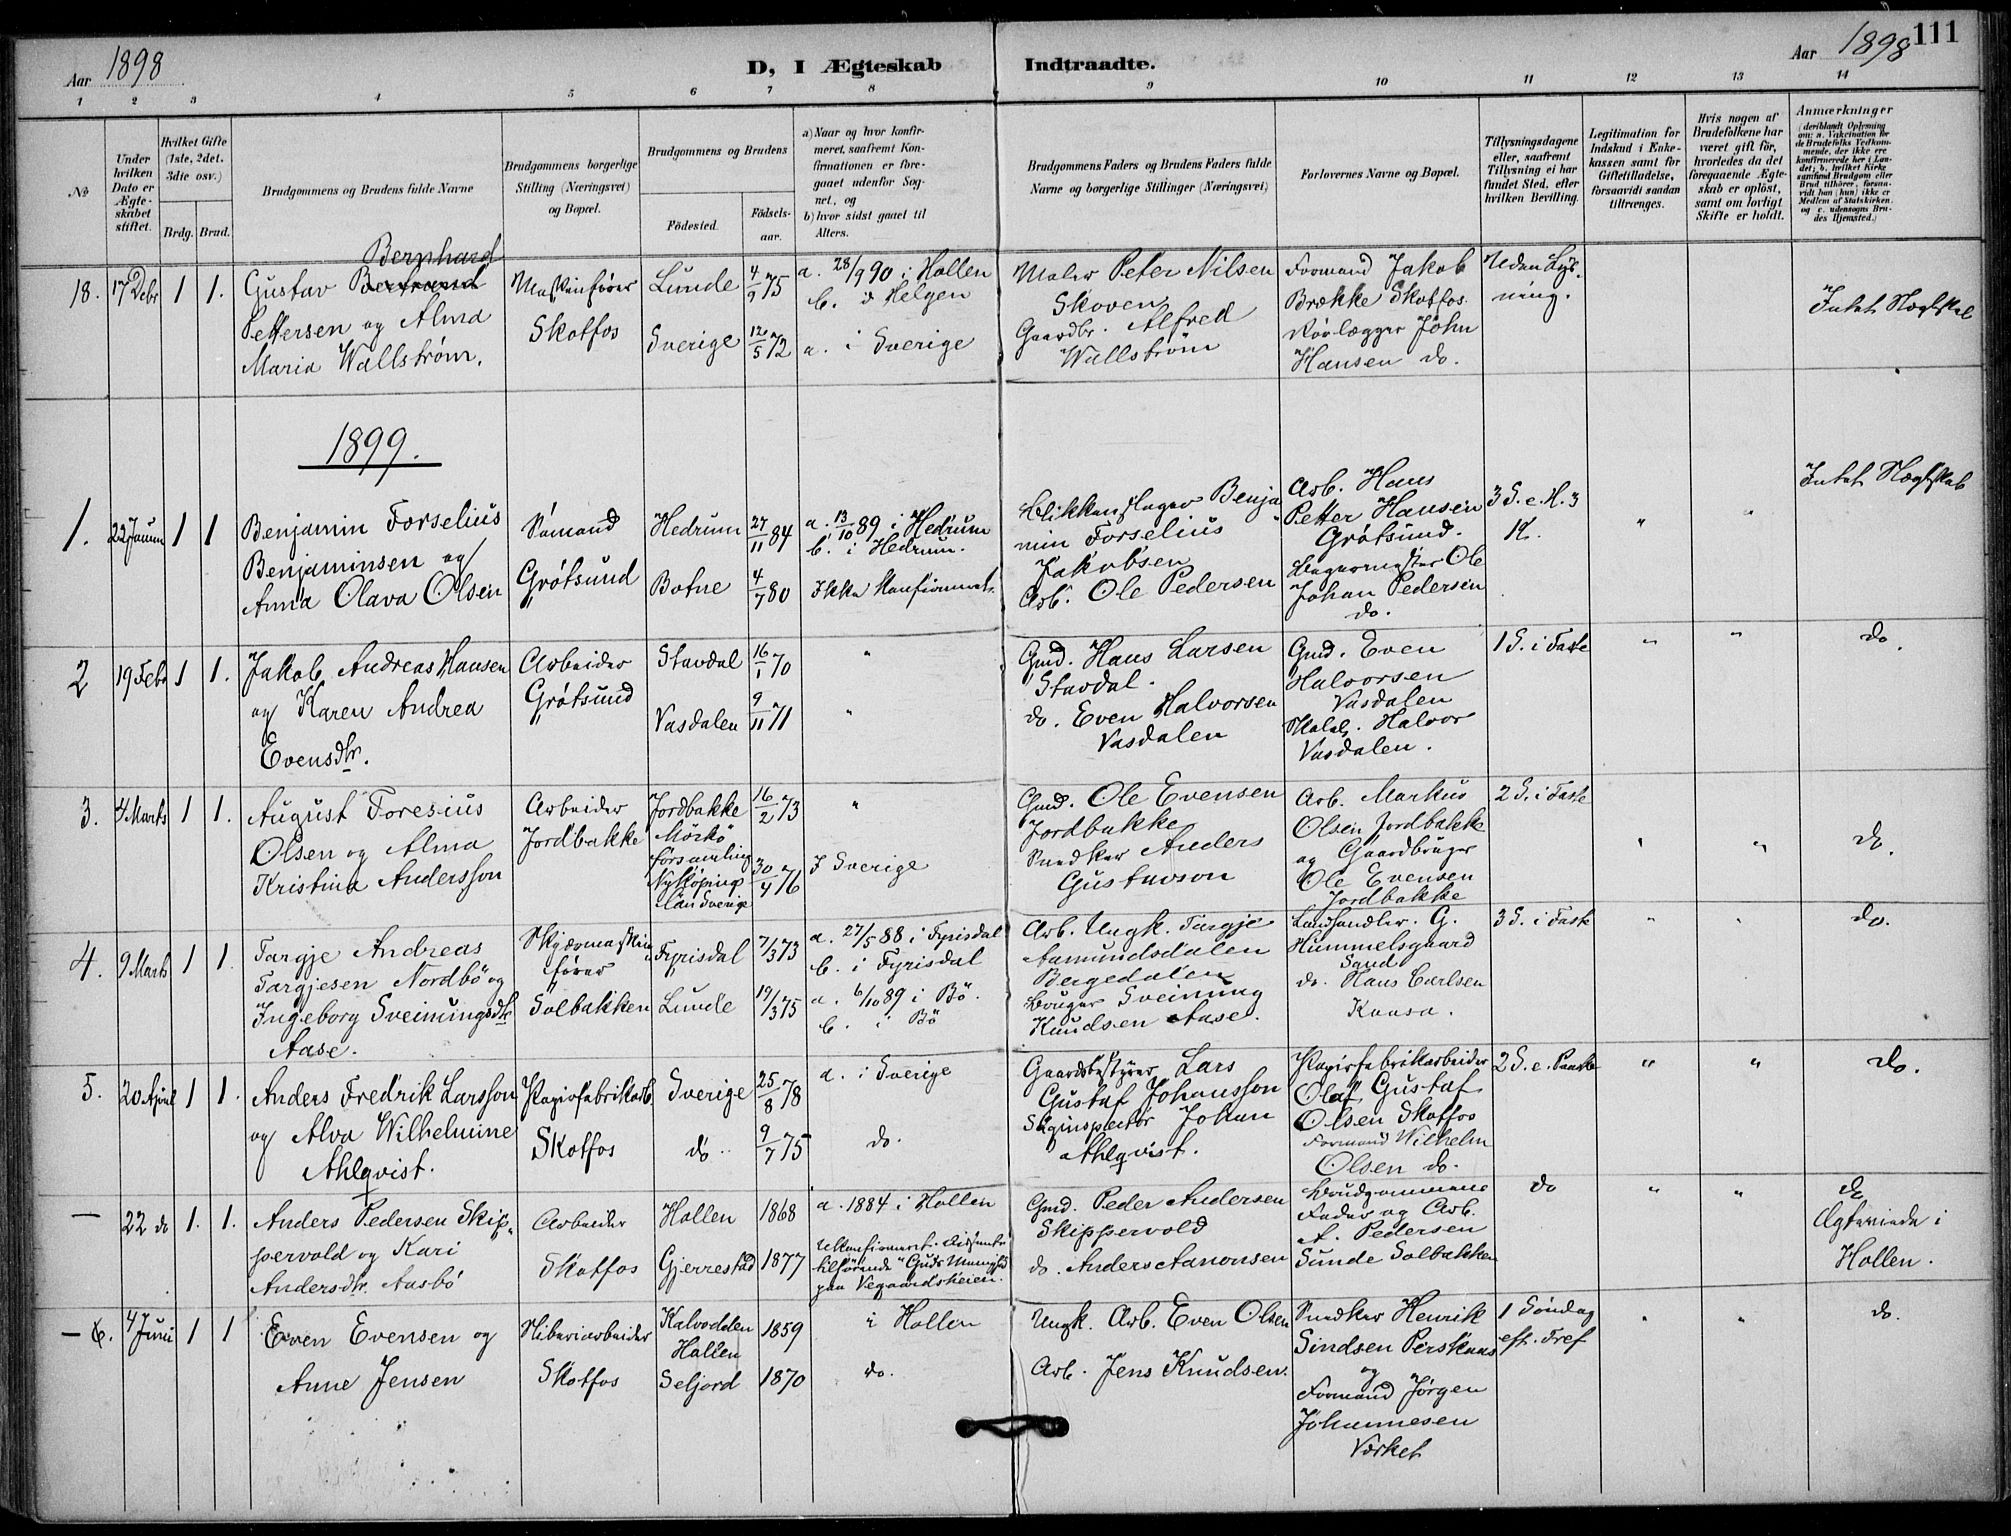 Aar 1898
D, I Ægteskab
Indtraadte.
Aar 1898
111
1 2 3 4 5 6 7 8 9 10 11 12 13 14
№
Under
hvilken
Dato er
Ægte-
skabet
stiftet.
Hvilket Gifte
(1ste, 2det,
3die osv.)
Brdg. Brud.
Brudgommens og Brudens fulde Navne
Brudgommens borgerlige
Stilling (Næringsvei)
og Bopæl.
Brudgommens og Brudens
Fødested.
Fødsels-
aar.
a) Naar og hvor konfir-
meret, saafremt Kon-
firmationen er fore-
gaaet udenfor Sog-
net, og
b) hvor sidst gaaet til
Alters.
Brudgommens Faders og Brudens Faders fulde
Navne og borgerlige Stillinger (Næringsvei)
Forlovernes Navne og Bopæl.
Tillysningsdagene
eller, saafremt
Tillysning ei har
fundet Sted, efter
hvilken Bevilling.
Legitimation for
Indskud i Enke-
kassen samt for
Giftetilladelse,
forsaavidt saadan
tiltrænges.
Hvis nogen af
Brudefolkene har
været gift før,
hvorledes da det
foregaaende Ægte-
skab er opløst,
samt om lovligt
Skifte er holdt.
Anmærkninger
(deriblandt Oplysning
om: a. Vakcination for
de Brudefolks Vedkom-
mende, der ikke ere
konfirmerede her i Lan-
det; b. hvilket Kirke
samfund Brudgom eller
Brud tilhører, forsaa-
vidt han (hun) ikke er
Medlem af Statskirken.
og c. udensogns Bru-
des Hjemsted.)
18. 17 Debr 1 1.
Bernhard
Gustav Bertrand
Pettersen og Alma
Maria Wallstrøm.
Maskinfører
Skotfos
Lunde 4/9 75
Sverige 12/5 72
a. 28/9 90 i Hollen
b. i Helgen
a. i Sverige
Maler Peter Nilsen
Skoven
Gaardbr. Alfred
Wallstrøm
Formand Jakob
Brække Skotfos.
Rørlægger John
Hansen do.
Uden Lys-
ning.
Intet Slegtskab
1899.
1. 22 Januar 1 1
Benjamin Forselius
Benjaminsen og
Anna Olava Olsen
Sømand
Grøtsund
Hedrum 27/11 84
Botne 4/7 80
a. 13/10 89 i Hedrum
b. i Hedrum.
Ikke Konfirmeret.
Blikkenslager Benja
min Forselius
Jakobsen
Arb. Ole Pedersen
Arb. Hans
Petter Hansen
Grøtsund.
Bagermester Ole
Johan Pedersen
do.
3 S. e. H. 3
K.
" "
Intet Slegtskab
2 19 Febr 1 1.
Jakob Andreas Hansen
og Karen Andrea
Evensdtr.
Arbeider
Grøtsund
Stavdal 16/1 70
Vasdalen 9/11 71
"
"
Gmd. Hans Larsen
Stavdal.
do. Even Halvorsen
Vasdalen
Gmd. Even
Halvorsen
Vasdalen
Halvor
Vasdalen.
1 S. i Faste
" "
do.
3. 4 Marts 1 1.
August Toresius
Olsen og Alma
Kristina Andersson
Arbeider
Jordbakke
Jordbakke 16/2 73
Mörkö
församling
Nyköping
län Sverige 30/4 76
"
I Sverige
Gmd. Ole Evensen
Jordbakke
Snedker Anders
Gustavson
Arb. Markus
Olsen Jordbakke
og Gaardbruger
Ole Evensen
Jordbakke
2 S. i Faste
" "
do.
4. 9 Marts 1 1.
Targje Andreas
Targjesen Nordbö og
Ingeborg Sveinungsdtr
Aase.
Skjæremaskin
fører
Solbakken
Fyrisdal 7/3 73
Lunde 19/3 75
a. 27/5 88 i Fyrisdal
b. i Fyrisdal
a. 6/10 89 i Bö.
b. i Bö
Arb. Ungk. Targje
Aamundsdalen
Bergedalen
bruger Sveinung
Knudsen Aase.
Landhandler. G.
Hummelsgaard
Sand
do. Hans Carlsen
Kaasa.
3 S. i Faste
" "
do.
5. 20 April 1 1.
Anders Fredrik Larsson
og Alva Wilhelmine
Ahlqvist.
Papirfabrikarb.
Skotfos
Sverige 25/8 78
do 9/7 75
a. i Sverige
do.
Gaardbestyrer Lars
Gustaf Johansson
Johan
Ahlqvist.
Papirfabrikarbeider
Olaf Gustaf
Olsen Skotfos
Formand Wilhelm
Olsen do.
2 S. e. Paaske
" "
do.
— 22 do 1. 1.
Anders Pedersen Skip-
pervold og Kari
Andersdtr. Aasbö
Arbeider
Skotfos
Hollen 1868
Gjerrestad 1877
a. 1884 i Hollen
Ukonfirmeret. Dissenter
tilhørende "Guds Menighed
paa Vegaardsheien.
Gmd. Peder Andersen
Skippervold
do. Anders Aanonsen
Brudgommens
Fader og Arb.
A. Pedersen
Sunde Solbakken
do
" "
do
Ægteviede i
Hollen.
— 6. 4 Juni 1 1
Even Evensen og
Anne Jensen
Sliberiarbeider
Skotfos
Kalvodden
Hollen 1859
Seljord 1870
i Hollen
do.
Ungk. Arb. Even Olsen
Arb. Jens Knudsen.
Snedker Henrik
Sindsen Perskaas
og
Formand Jørgen
Johannesen
Værket
1 Søndag
eft. Tref
" "
do.